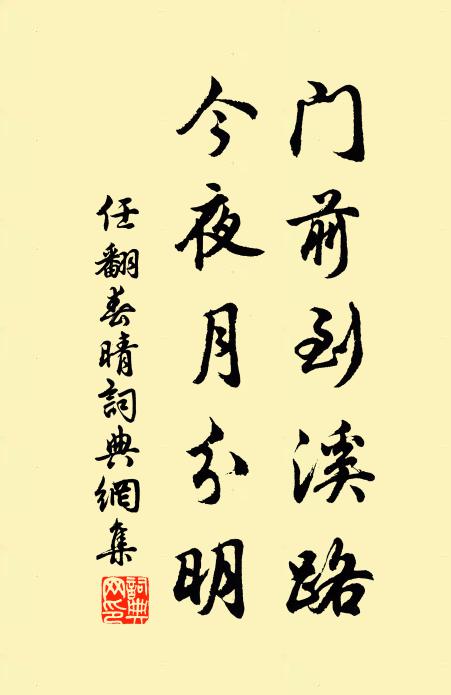 门前到溪路
今夜月分明
任翻春晴詞典網集
詞典网印